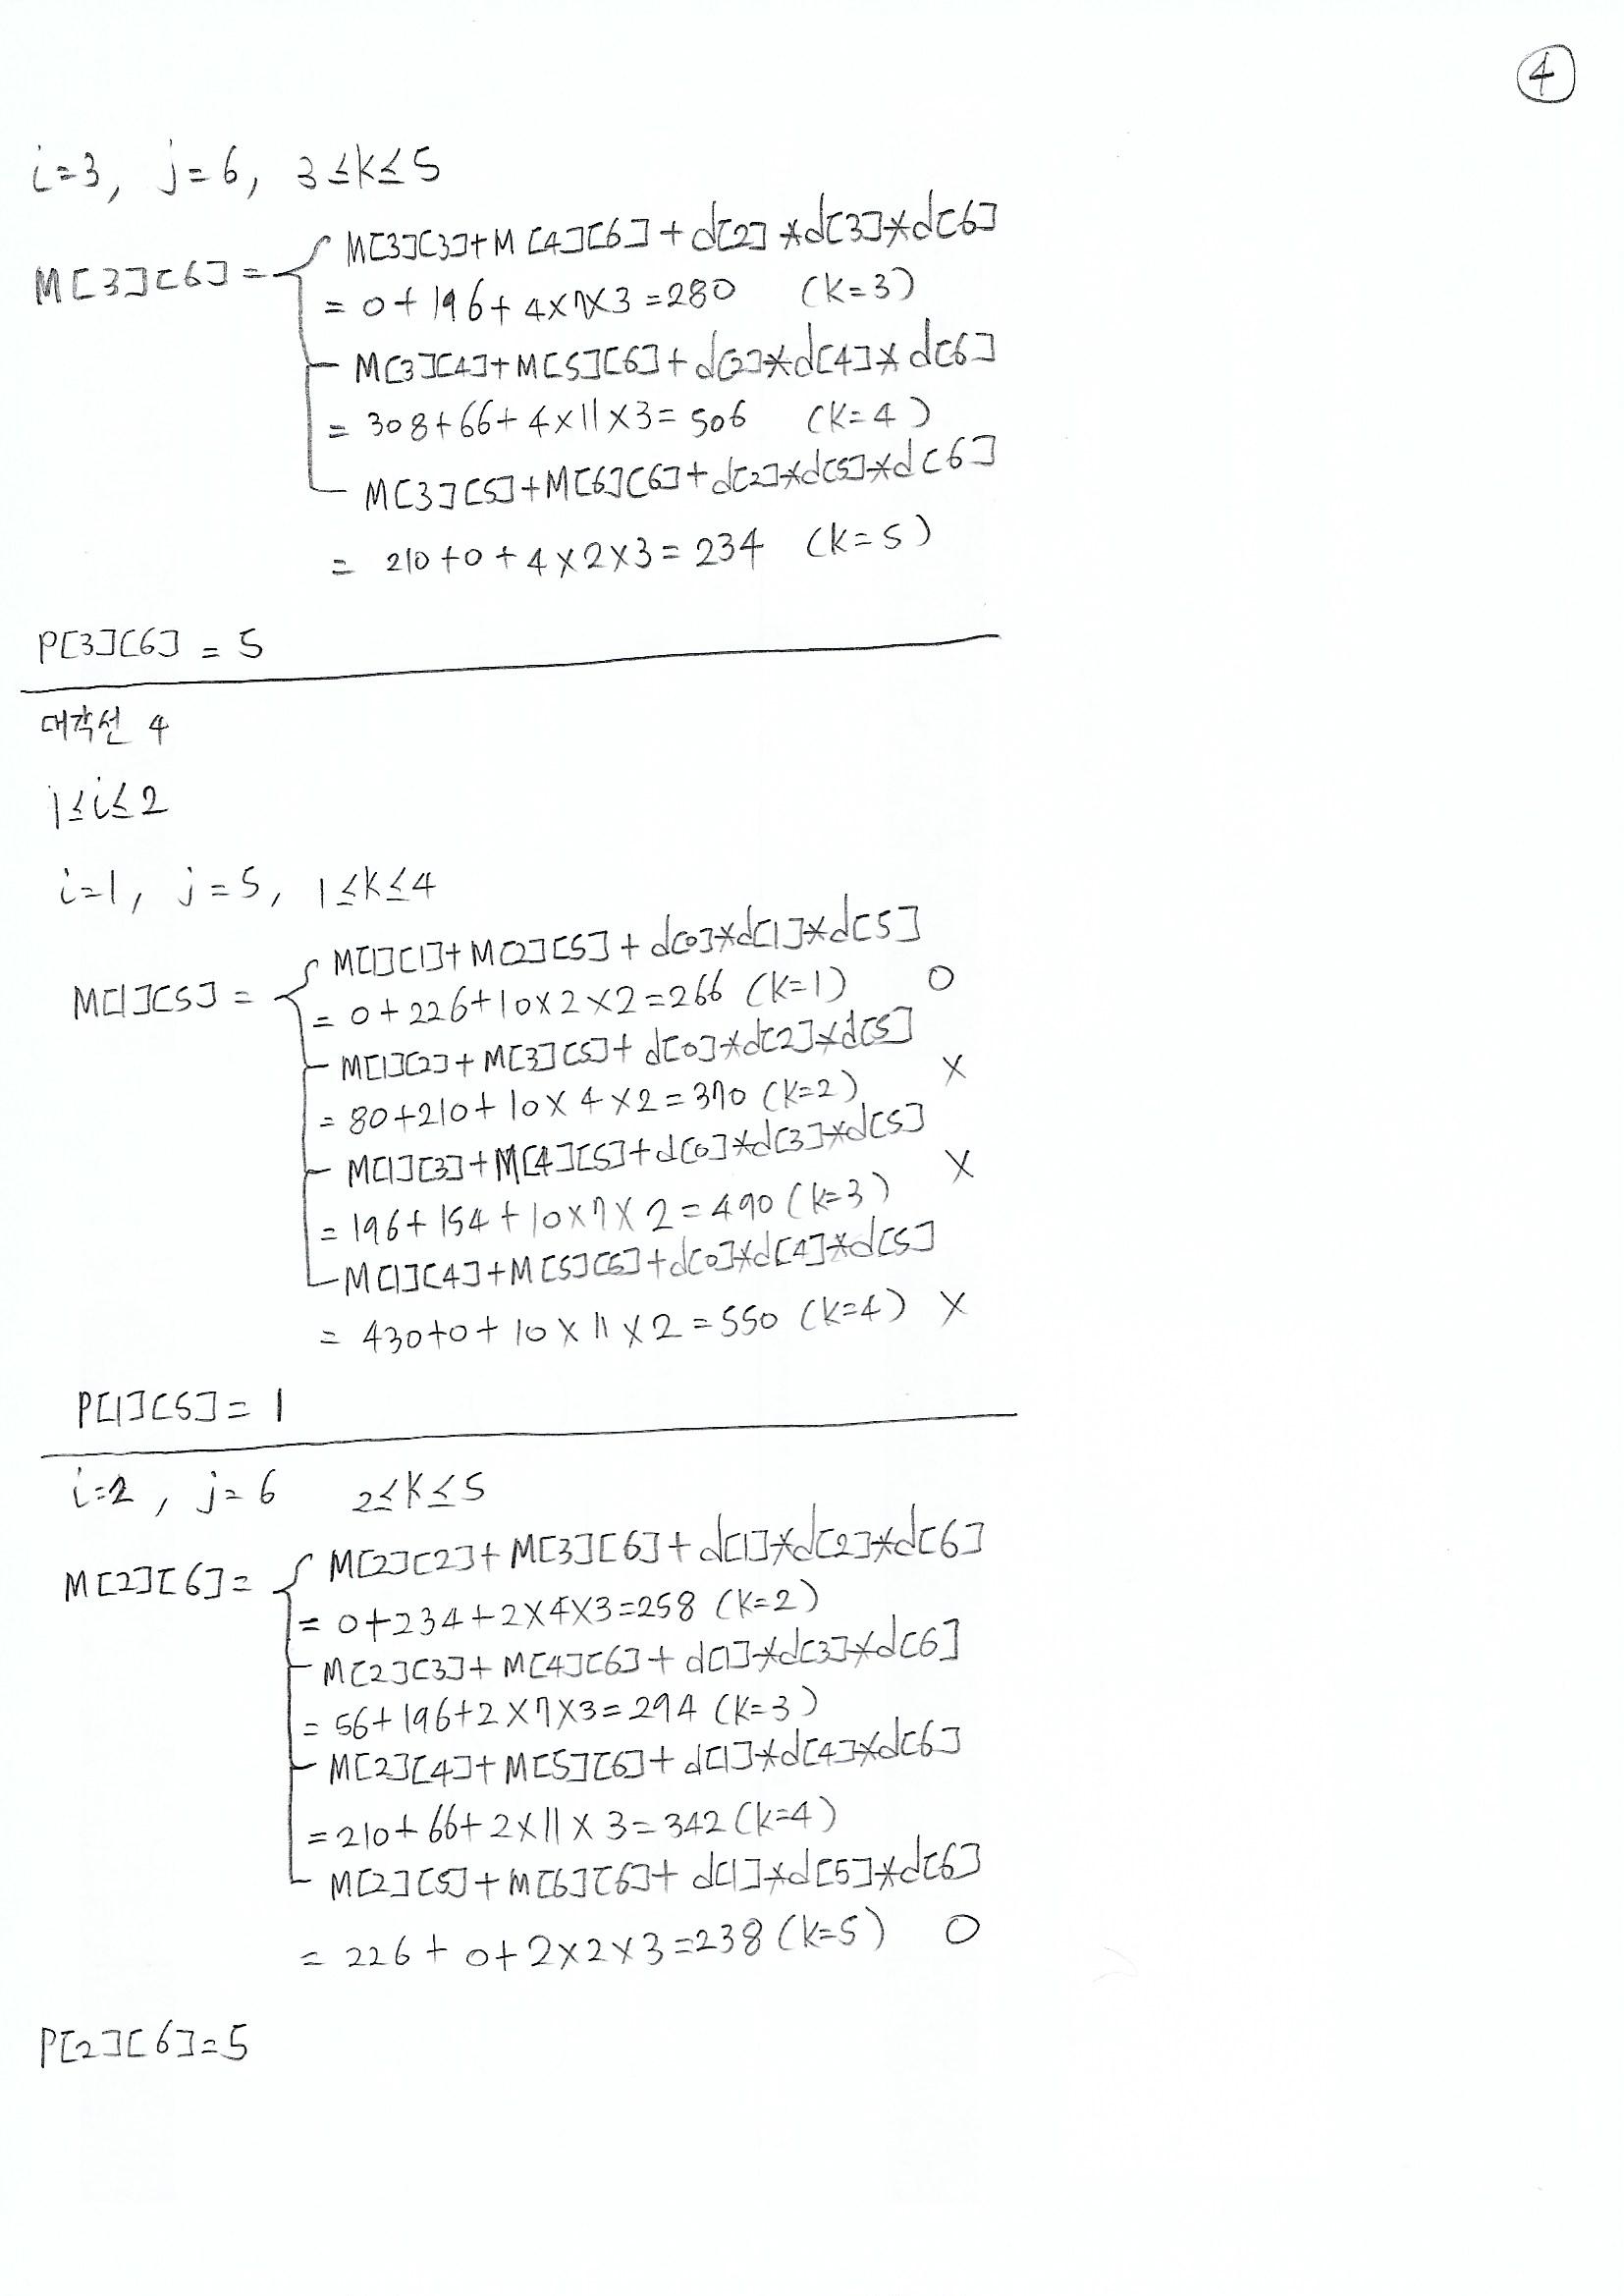 ④
i=3, j=6, 3≤k≤5
M[3][6]= M[3][3]+M[4][6]+d[2]*d[3]*d[6]
=0+196+4×7×3=280 (k=3)
M[3][4]+M[5][6]+d[2]*d[4]*d[6]
=308+66+4×11×3=506 (k=4)
M[3][5]+M[6][6]+d[2]*d[5]*d[6]
= 210+0+4×2×3=234 (k=5)
P[3][6]=5
대각선 4
1≤i≤2
i=1, j=5, 1≤k≤4
M[1][5]= M[1][1]+M[2][5]+d[0]*d[1]*d[5]
=0+226+10×2×2=266 (k=1) O
M[1][2]+M[3][5]+d[0]*d[2]*d[5]
=80+210+10×4×2=370 (k=2) X
M[1][3]+M[4][5]+d[0]*d[3]*d[5]
=196+154+10×7×2=490 (k=3) X
M[1][4]+M[5][5]+d[0]*d[4]*d[5]
= 430+0+10×11×2=550 (k=4) X
P[1][5]=1
i=2, j=6 2≤k≤5
M[2][6]= M[2][2]+M[3][6]+d[1]*d[2]*d[6]
=0+234+2×4×3=258 (k=2)
M[2][3]+M[4][6]+d[1]*d[3]*d[6]
=56+196+2×7×3=294 (k=3)
M[2][4]+M[5][6]+d[1]*d[4]*d[6]
=210+66+2×11×3=342 (k=4)
M[2][5]+M[6][6]+d[1]*d[5]*d[6]
=226+0+2×2×3=238 (k=5) O
P[2][6]=5